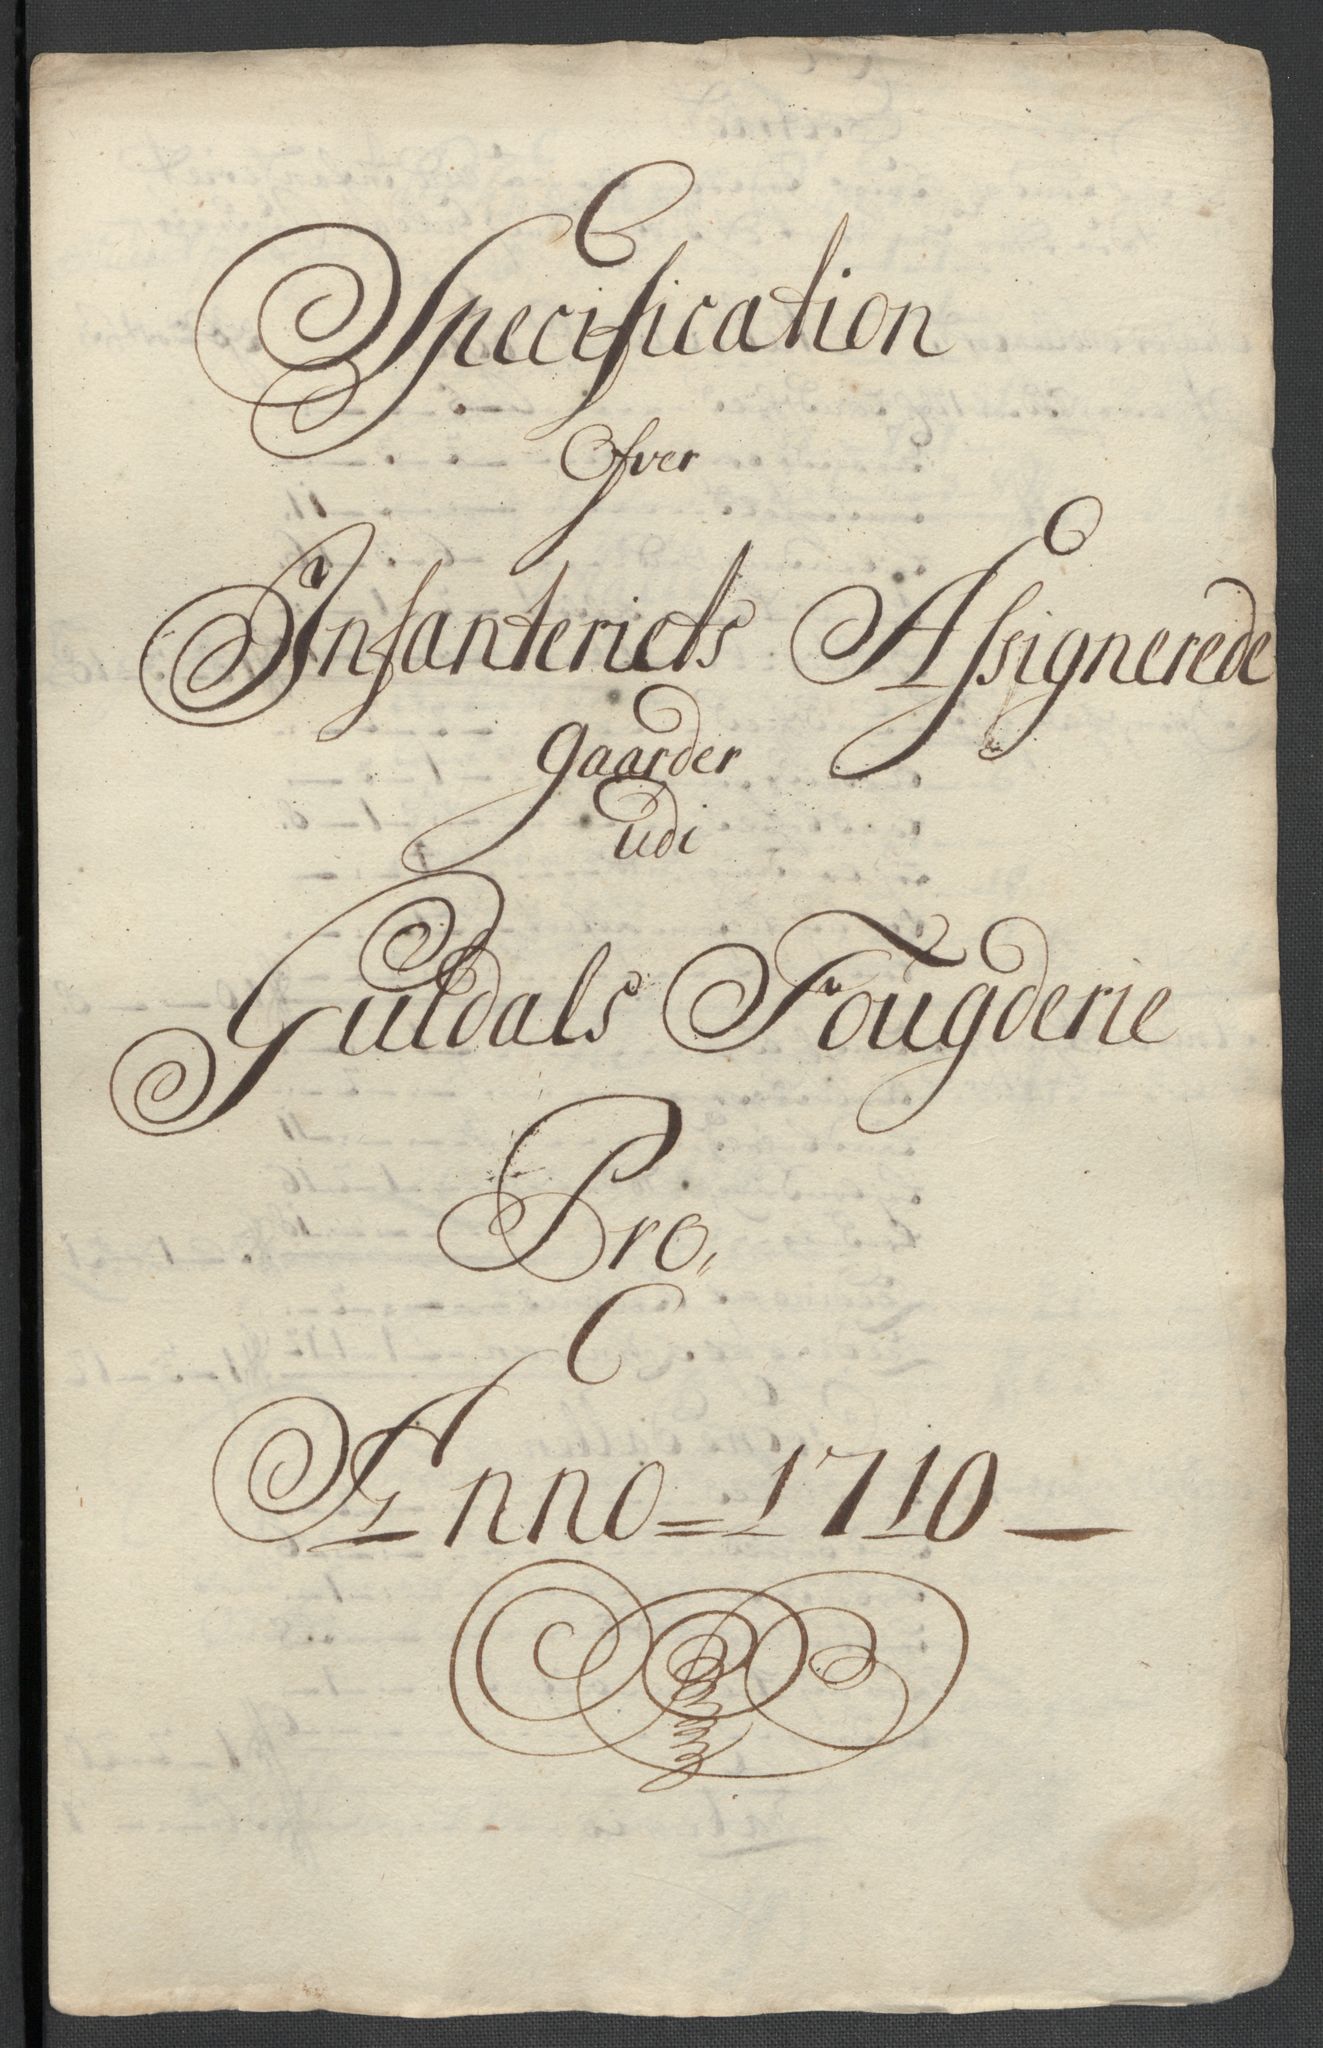 Specification
Ofver
Infanteriets Assignerede
gaarder
udi
Guldals Fougderie
Pro,,
Anno = 1710 —